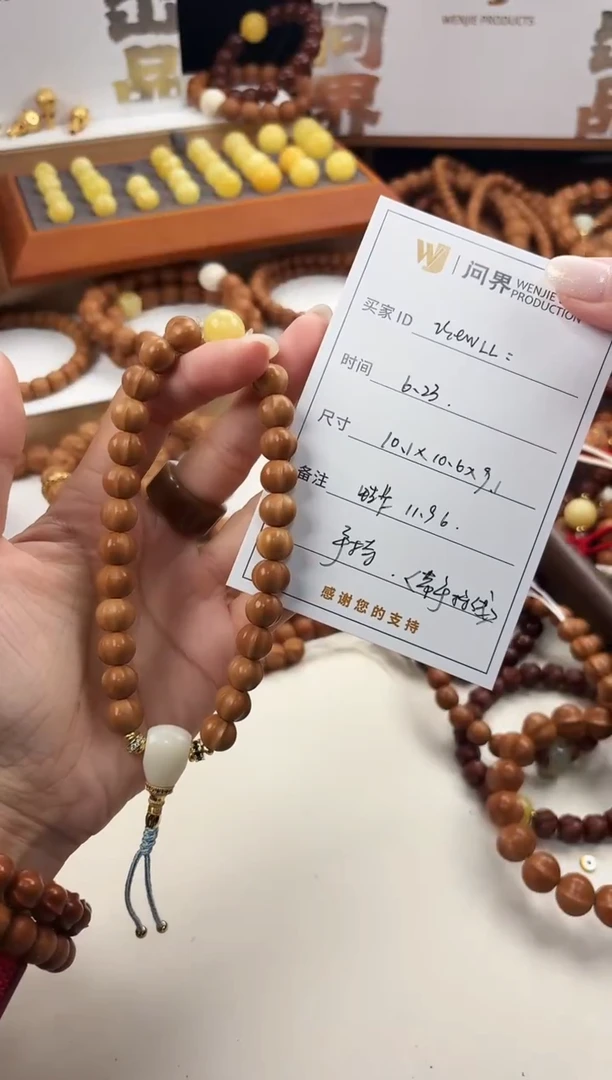 问
界
品
WENJIE PRODUCTS
WJ 问界 WENJIE
PRODUCTION
买家ID
时间 6.23.
尺寸 10.1×10.6×9.1
备注 11.96.
手持.〈带手持线〉
感谢您的支持